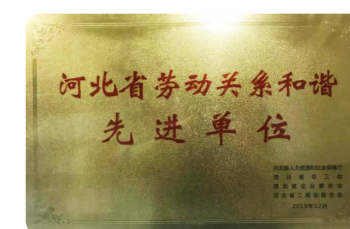 河北省劳动关系和谐
先进单位
河北省人力资源和社会保障厅
河北省总工会
河北省企业联合会
河北省工商业联合会
2019年12月